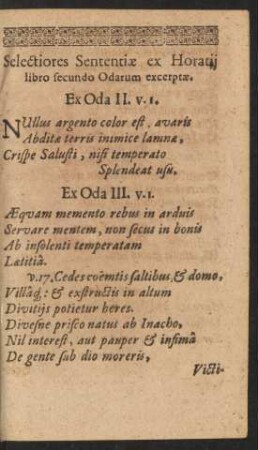 Selectiores Sententiæ ex Horatij
libro secundo Odarum excerptæ.
Ex Oda II. v. 1.
NUllus argento color est, avaris
Abditæ terris inimice lamnæ,
Crispe Salusti, nisi temperato
Splendeat usu.
Ex Oda III. v. 1.
Æqvam memento rebus in arduis
Servare mentem, non secus in bonis
Ab insolenti temperatam
Lætitiâ.
v. 17. Cedes coëmtis saltibus, & domo,
Villáq; : & exstructis in altum
Divitijs potietur heres.
Divesne prisco natus ab Inacho,
Nil interest, aut pauper & infimâ
De gente sub dio moreris,
Victi-